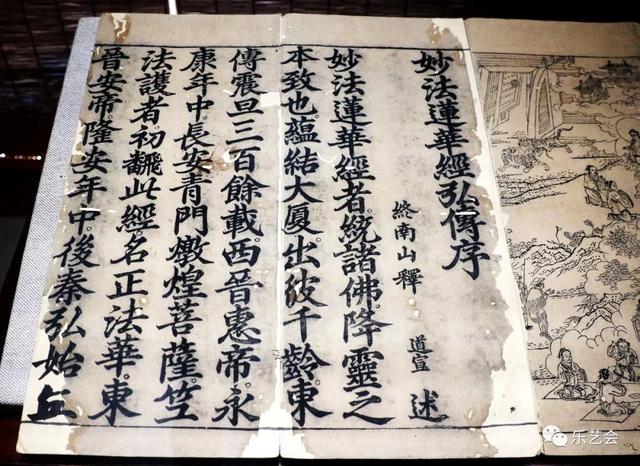 妙法蓮華經弘傳序
終南山釋 道宣 述
妙法蓮華經者。統諸佛降靈之
本致也。蘊結大厦。出彼千齡。東
傳震旦三百餘載。西晉惠帝。永
康年中。長安青門。燉煌菩薩。竺
法護者。初飜此經。名正法華。東
晉安帝。隆安年中。後秦弘始。丘
乐艺会